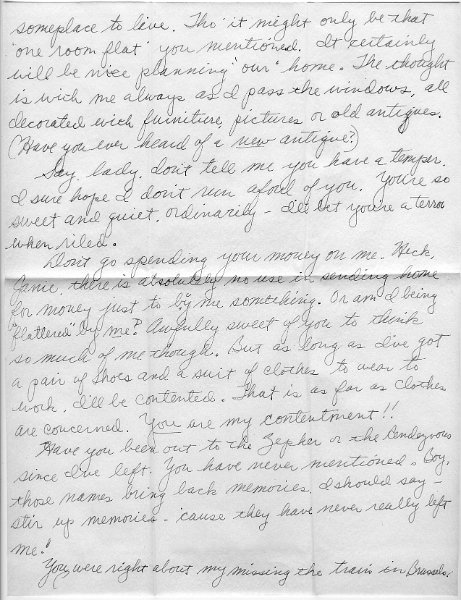 someplace to live. Tho' it might only be that
'one room flat' you mentioned. It certainly
will be nice planning "our" home. The thought
is with me always as I pass the windows, all
decorated with furniture, pictures or old antiques.
(Have you ever heard of a new antique?)
Say, lady, don't tell me you have a temper.
I sure hope I don't run afoul of you. You're so
sweet and quiet, ordinarily - I'll bet you're a terror
when riled.
Don't go spending your money on me. Heck,
Janie, there is absolutely no use in sending home
for money just to by me something. Or am I being
"flattered" by me? Awfully sweet of you to think
so much of me though. But as long as I've got
a pair of shoes and a suit of clothes to wear to
work, I'll be contented. That is as far as clothes
are concerned. You are my contentment!!
Have you been out to the Zepher or the Rendezvous
since I've left. You have never mentioned. Boy,
those names bring back memories, I should say -
stir up memories - 'cause they have never really left
me!
You were right about my missing the train in Brussels.